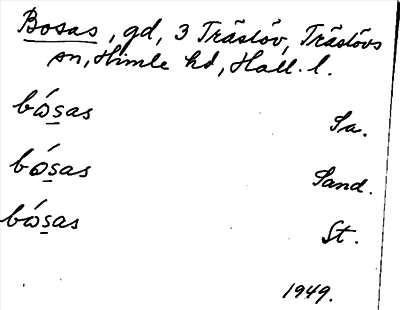 Bosas, gd, 3 Träslöv, Träslövs
sn, Himle hd, Hall. l.
bósas Sa.
bósas Sand.
bósas St.
1949.